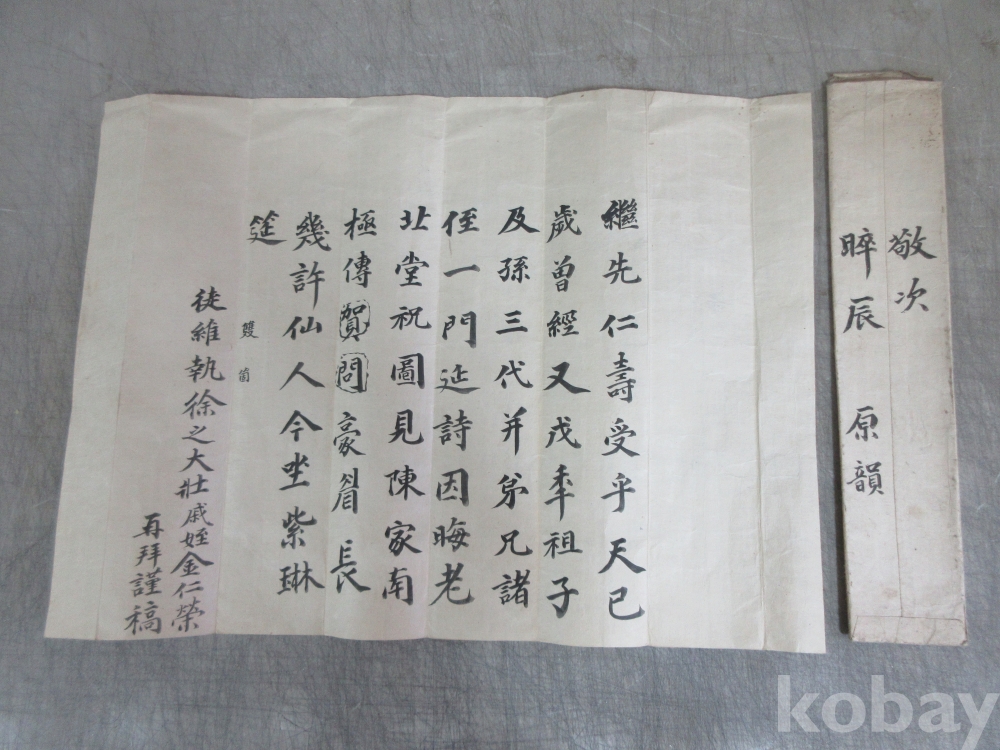 敬次
晬辰 原韻
繼先仁壽受乎天已
歲曾經又戊秊祖子
及孫三代并弟兄諸
侄一門延詩因晦老
北堂祝圖見陳家南
極傳賀問豪眉長
幾許仙人今坐紫琳
筵
雙 箇
徒維執徐之大壯戚姪金仁榮
再拜謹稿
kobay